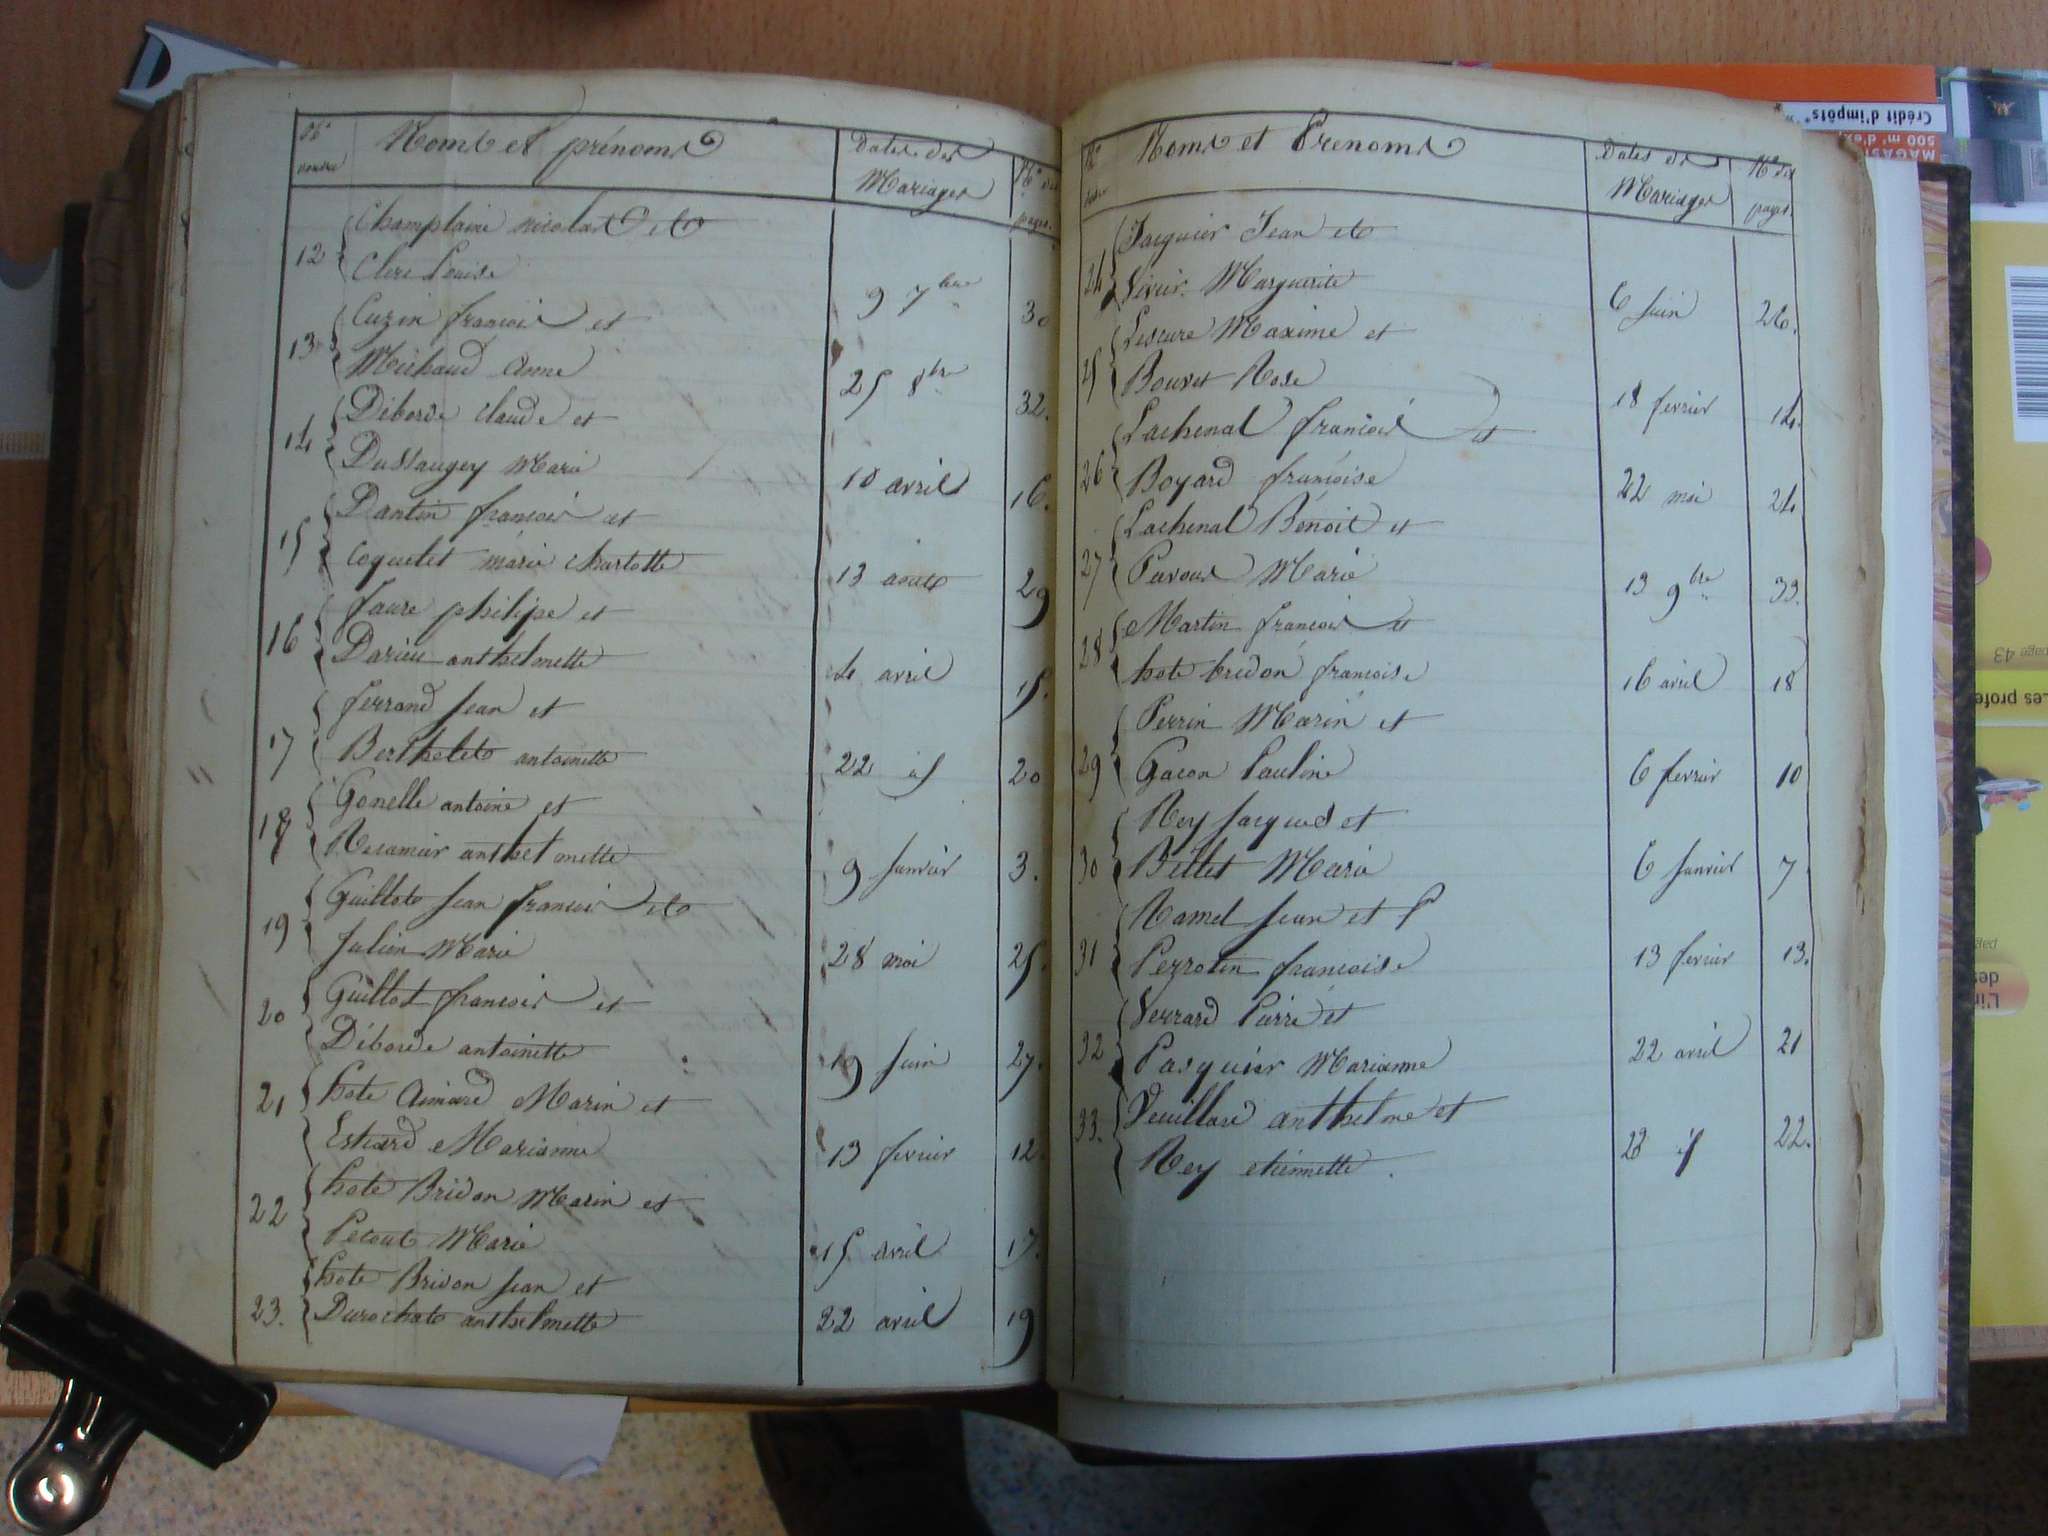 Nos d'ordre
Noms et prénoms
Dates des Mariages
Nos des pages.
12 Champlaine nicolas et
Clere Louise 9 7bre 30
13 Cuzin francois et
Michaud anne 25 8bre 32.
14 Déborde claude et
Dussaugey Marie 10 avril 16.
15 Dantin francois et
Coquelet marie charlotte 13 aout 29
16 faure philipe et
Darieu anthelmette 4 avril 15.
17 ferrand Jean et
Berthelet antoinette 22 id 20
18 Gonelle antoine et
Recamier anthelmette 9 Janvier 3.
19 Guillot Jean francois et
Julien Marie 28 mai 25.
20 Guillot francois et
Déborde antoinette 19 Juin 27.
21 hote Aimard Marin et
Estard Marianne 13 fevrier 12
22 hote Bridon Marin et
Pecout Marie 15 avril 17.
hote Bridon Jean et
23. Durochat anthelmette 22 avril 19
Noms et Prenoms
Dates des Mariages
Nos des pages.
24 Jacquier Jean et
Marguerite 6 Juin 26.
25 Lescure Maxime et
Bouvet Rose 18 fevrier 14.
26 Lachenal francois et
Boyard francoise 22 mai 24
27 Lachenal Benoit et
Marie 13 9bre 33.
28 Martin francois et
hote bridon francoise 16 avril 18
Perrin Marin et
29 Gacon Pauline 6 fevrier 10
Rey Jacques et
30 Billet Marie 6 Janvier 7
Ramel Jean et P
31 Perrotin francoise 13 fevrier 13.
Verrard Pierre et
32 Pasquier Marianne 22 avril 21
33. Veuillard anthelme et
Rey etiennette. 23 id 22.
Crédit d'impôts*
MAGAS
500 m² d'ex
page 43
Les profe
L'in
des